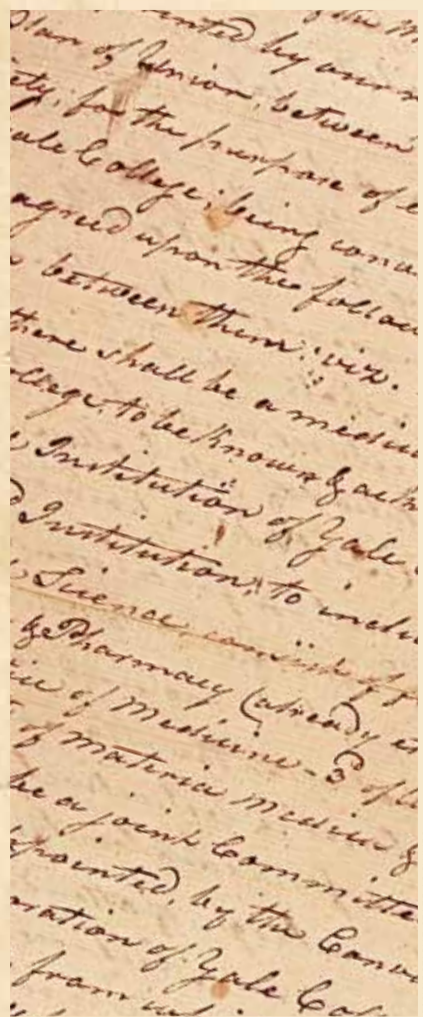 of the M
ointed by
Plan of Union, between
ety, for the purpose of e
ale College; being conv
agreed upon the follow
between them: viz.
there shall be a medic
ollege, to be known & ack
Institution of Yale
Institution, to inclu
Science, consist of
& Pharmacy (already e
ice of Medicine - 3d of
of Materia Medica &
be a joint Committe
ppointed, by the Conv
oration of Yale Col
from